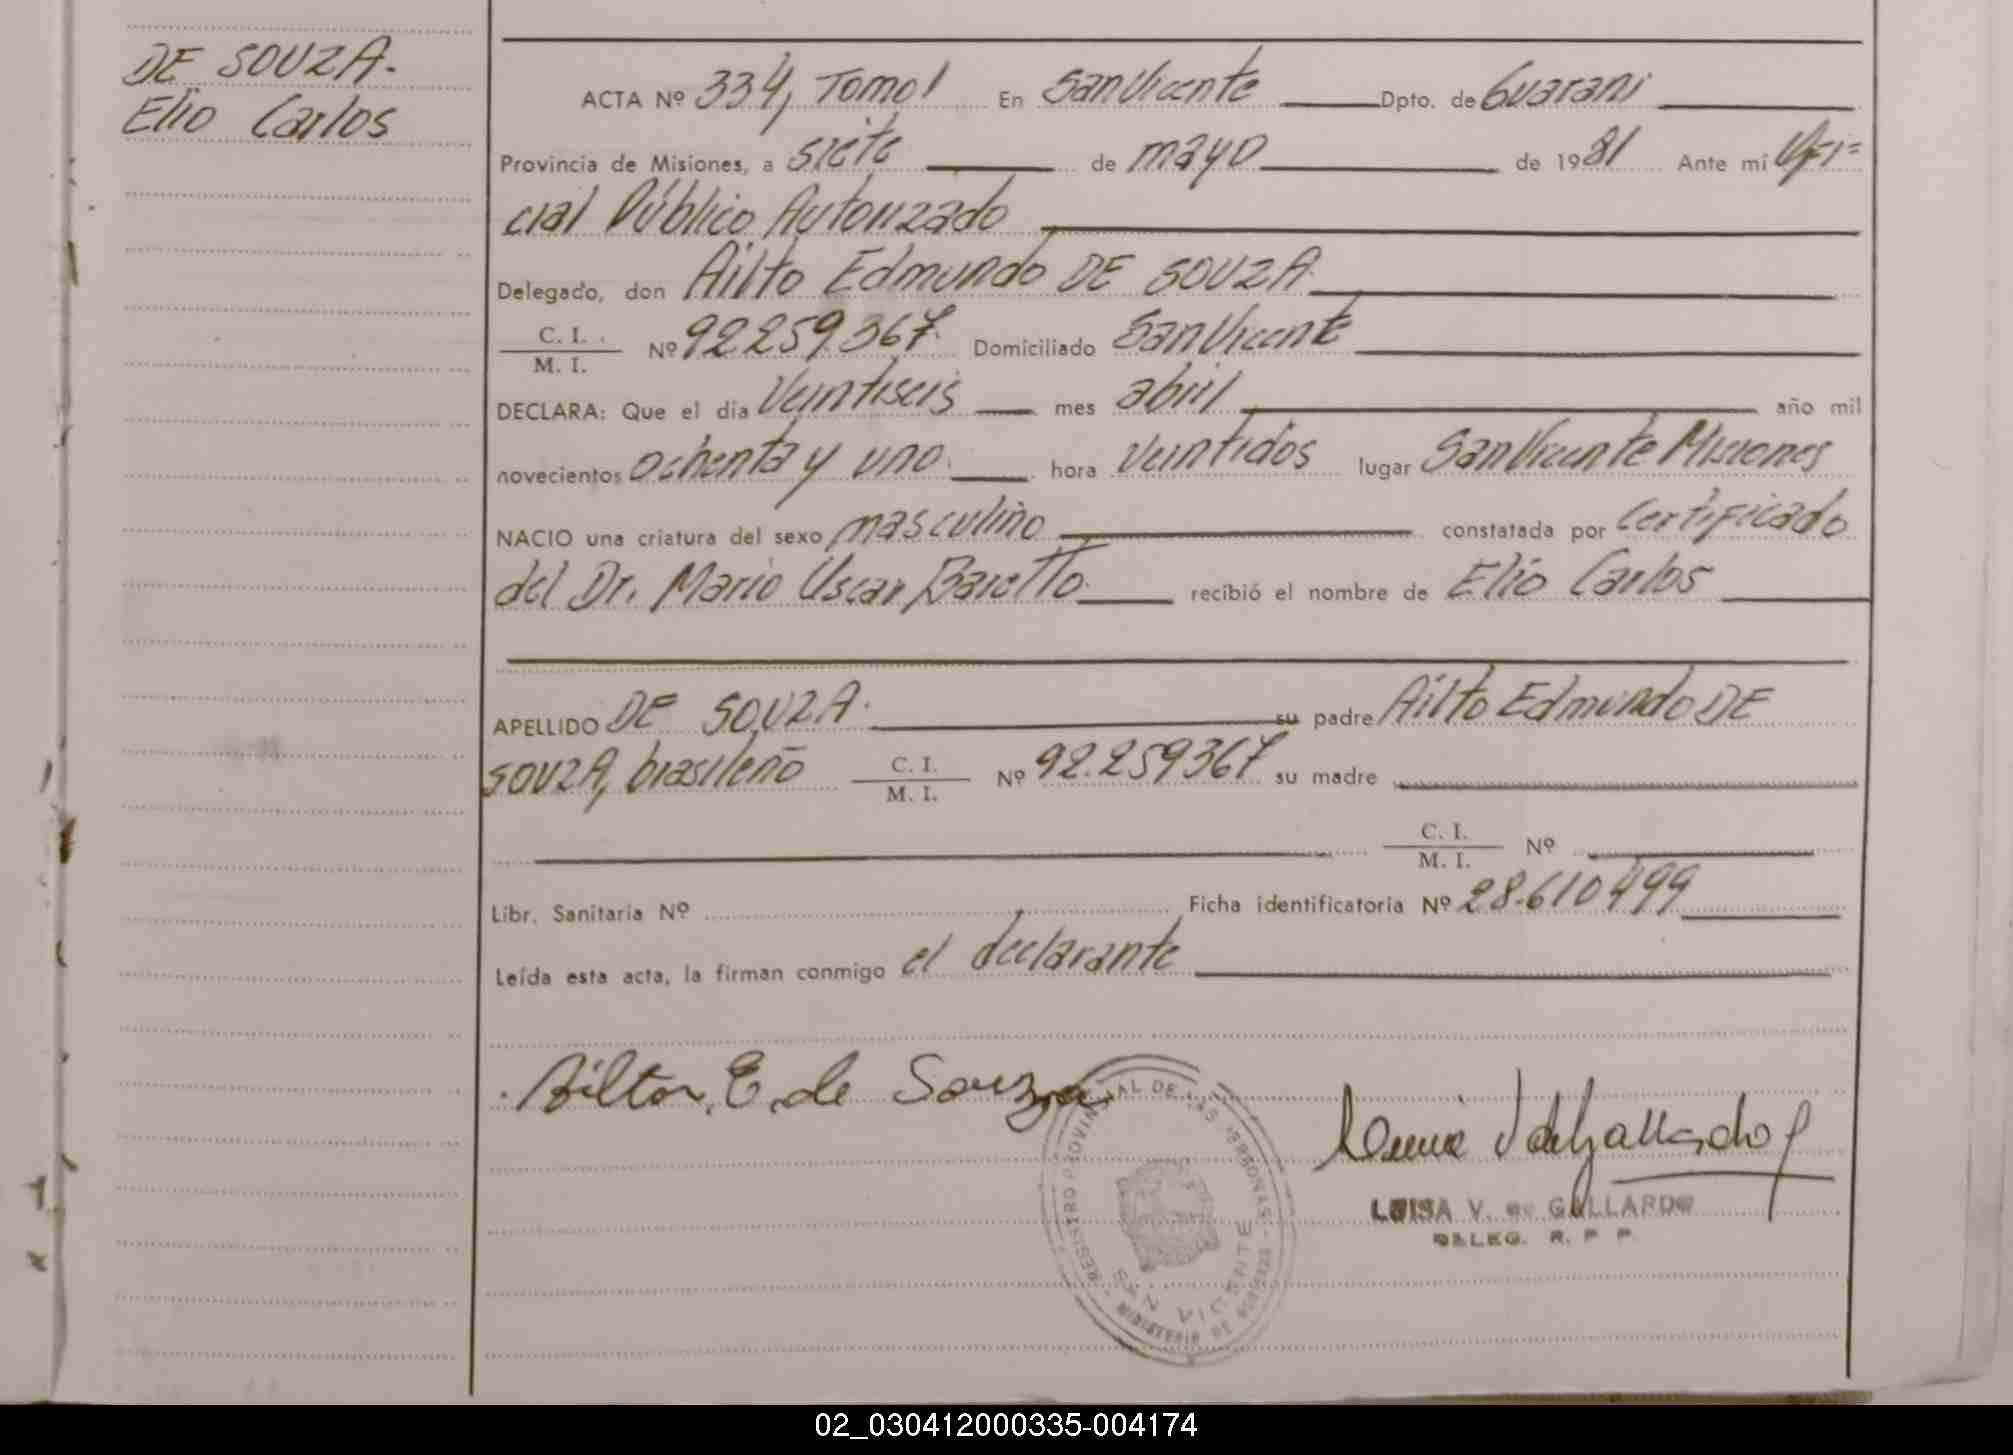 DE SOUZA.
Elio Carlos
ACTA Nº 334, Tomo I En San Vicente Dpto. de Guarani
Provincia de Misiones, a siete de mayo de 1981 Ante mí Ofi=
cial Público Autorizado
Delegado, don Ailto Edmundo DE SOUZA
C. I. / M. I. Nº 92259.367 Domiciliado San Vicente
DECLARA: Que el día Veintiseis mes abril año mil
novecientos ochenta y uno hora Veintidos lugar San Vicente Misiones
NACIO una criatura del sexo masculino constatada por Certificado
del Dr. Mario Oscar Baretto recibió el nombre de Elio Carlos
APELLIDO DE SOUZA. su padre Ailto Edmundo DE
SOUZA, brasileño C. I. / M. I. Nº 92.259367 su madre
C. I. / M. I. Nº
Libr. Sanitaria Nº Ficha identificatoria Nº 28.610499
Leída esta acta, la firman conmigo el declarante
Ailton E. de Souza
REGISTRO PROVINCIAL DE LAS PERSONAS
SAN VICENTE
MINISTERIO DE
LUISA V. de GALLARDO
DELEG. R. P. P.
02_030412000335-004174